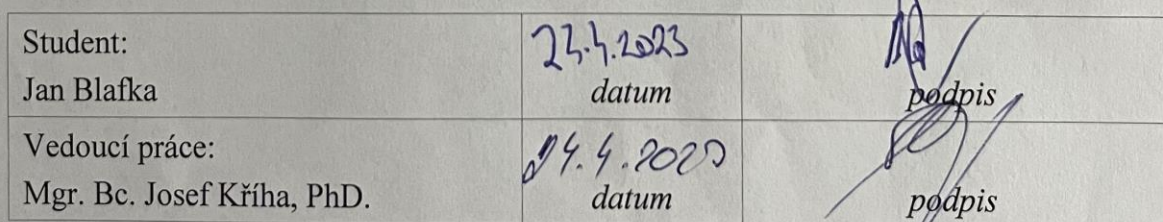 Student:
Jan Blafka
23.4.2023
datum
podpis
Vedoucí práce:
Mgr. Bc. Josef Kříha, PhD.
24.4.2023
datum
podpis